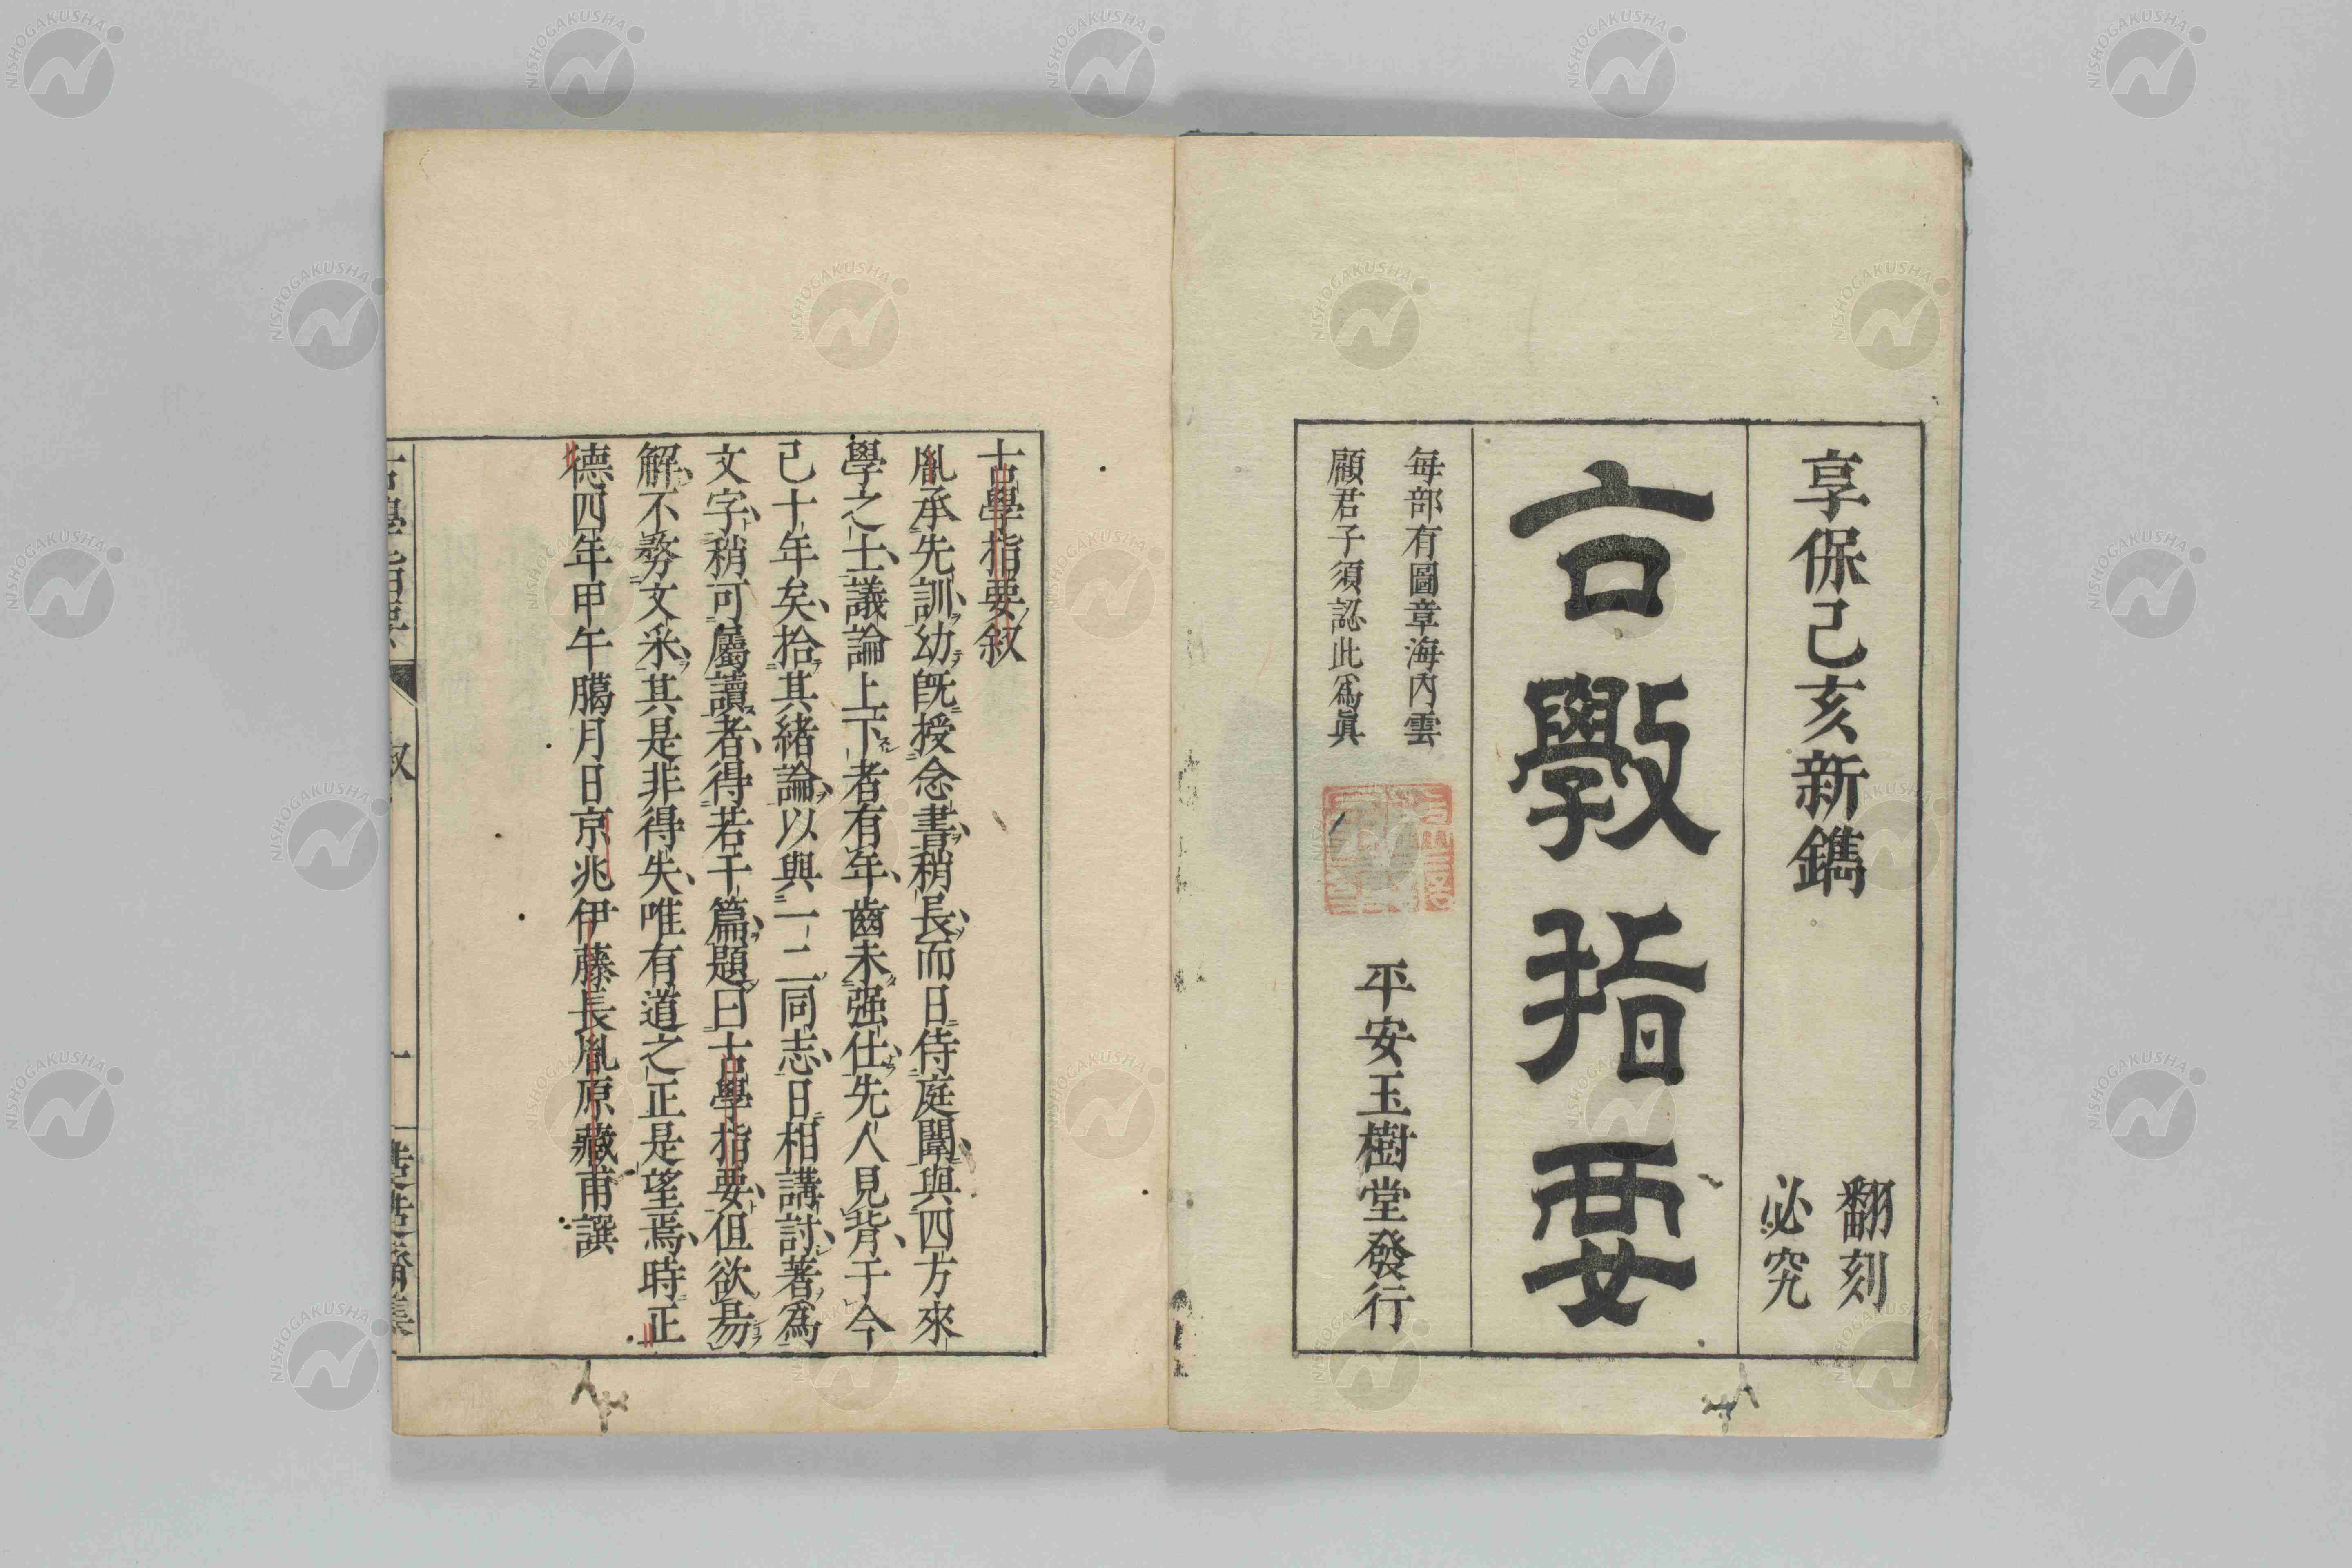 享保己亥新鐫
翻刻
必究
古斅指要
每部有圖章海內雲
顧君子須認此爲眞
平安玉樹堂發行
古學指要叙
胤承先訓幼旣授念書稍長而日侍庭闈與四方來
學之士議論上下者有年齒未强仕先人見背于今
己十年矣拾其緒論以與一二同志日相講討著爲
文字稍可屬讀者得若干篇題曰古學指要但欲易
解不務文采其是非得失唯有道之正是望焉時正
德四年甲午臈月日京兆伊藤長胤原藏甫譔
古學指要 叙 一
NISHOGAKUSHA